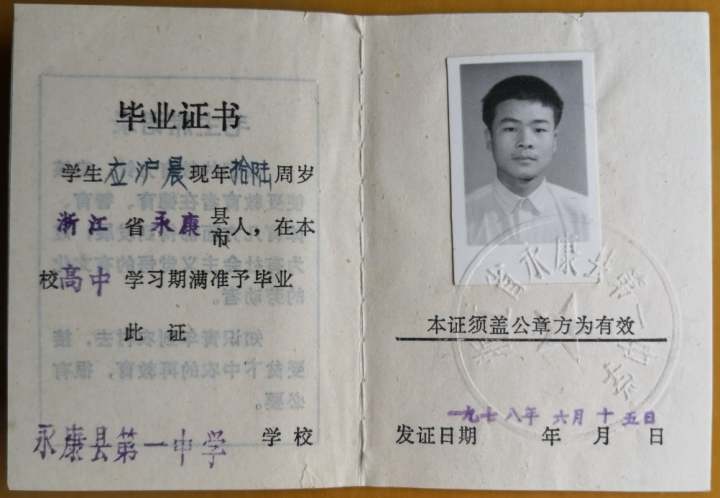 毕业证书
学生应沪晨现年拾陆周岁
浙江省永康县市人，在本
校高中学习期满准予毕业
此证
永康县第一中学学校
本证须盖公章方为有效
一九七八年六月十五日
发证日期 年 月 日